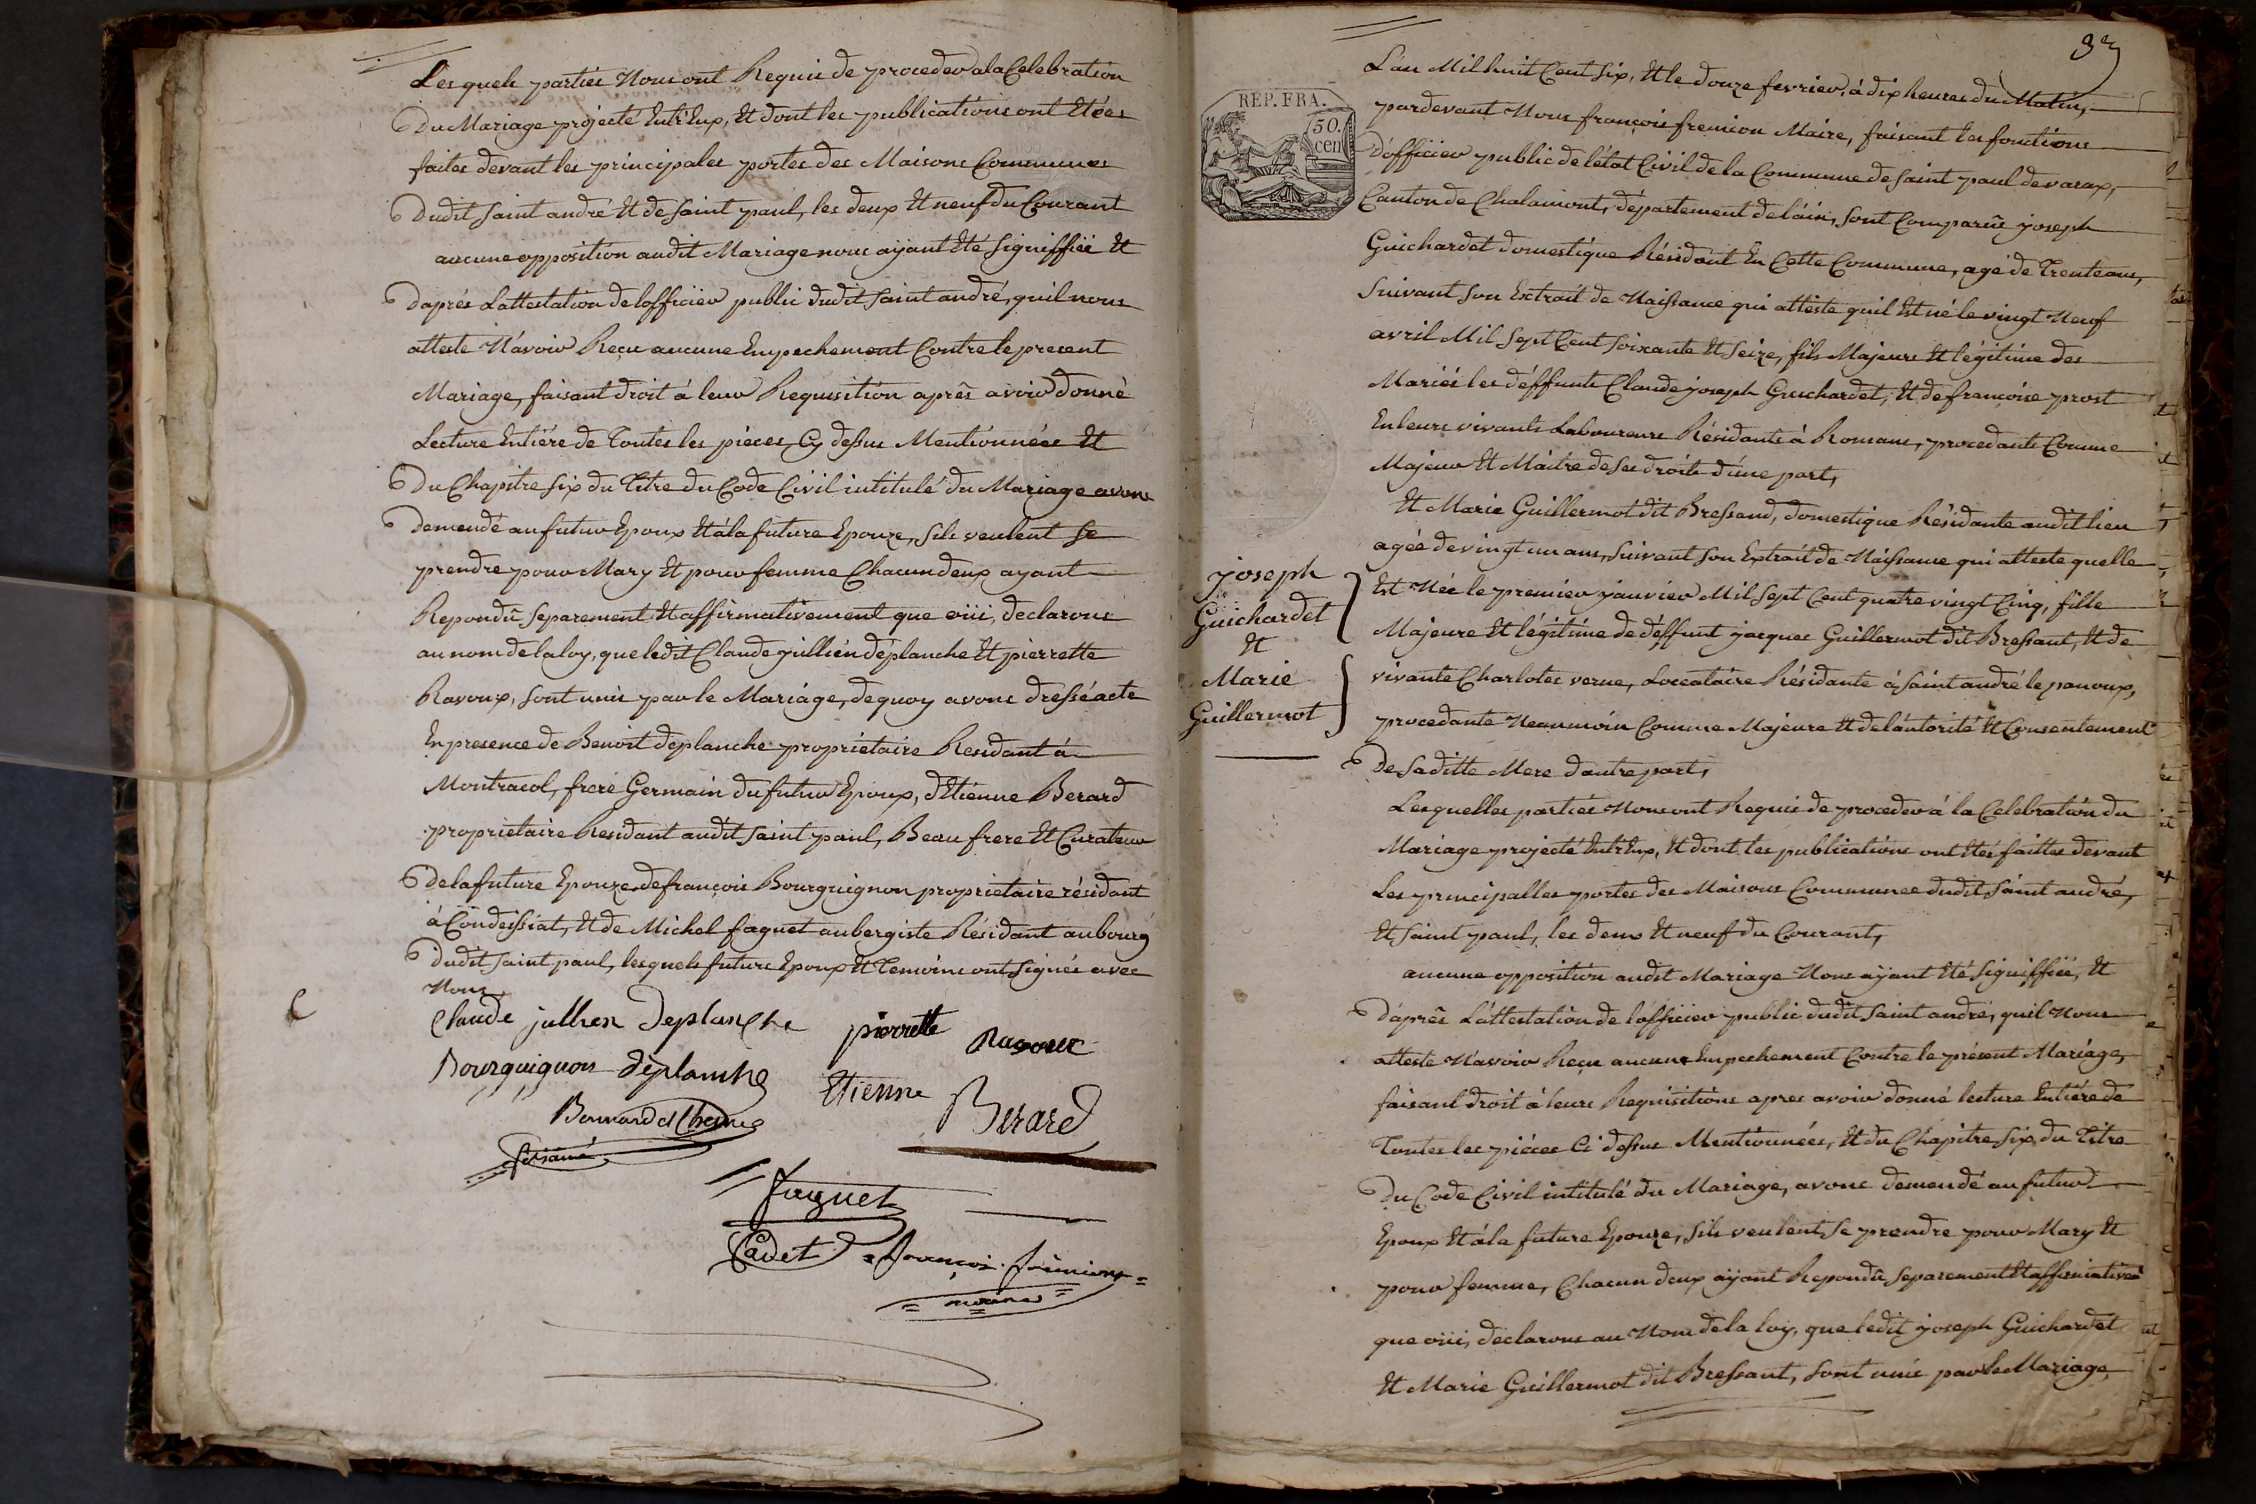 Lesquels parties Nous ont Requis de proceder a la Celebration
Du Mariage projecté Entr'Eux, Et dont les publications ont Etées
faites devant les principales portes des Maisons Communes
Dudit Saint andré Et de Saint paul, les deux Et neuf du Courant
aucune opposition audit Mariage nous aÿant Eté Signiffiée Et
D'aprés L'attestation de lofficiier public dudit Saint andré, quil nous
atteste N'avoir Reçu aucune Empechement Contre le present
Mariage, faisant droit á leur Requisition aprês avoir donné
Lecture Entiére de Toutes les pieces Cy dessus Mentionnées Et
Du Chapitre Six du Titre du Code Civil intitulé du Mariage avons
Demendé au futur Epoux Et á la future Epouze, Sils veulent Se
prendre pour Mary Et pour femme Chacun deux ayant
Repondû Separement Et affirmativement que oüi, declarons
au nom de la loy, que ledit Claude jullien déplanche Et pierrette
Ravoux, sont unis par le Mariage, de quoy avons dressé acte
En presence de Benoit deplanche proprietaire Residant á
Montracol, frere Germain du futur Epoux, d'Etienne Berard
proprietaire Residant audit Saint paul, Beau frere Et Curateur
De la future Epouze, de françois Bourguignon proprietaire résidant
á Condeissiat, Et de Michel faguet aubergiste Résidant au bourg
Dudit Saint paul, lesquels futurs Epoux Et Temoins ont Signés avec
Nous
Claude jullien Deplanche pierrette Ravoux
Bourguignon déplanche Etienne Berard
faguet
Cadet françois fremion
maire
L'an Mil huit Cent Six, Et le douze fevrier, á dix heures du Matin,
REP. FRA.
50.
cen
pardevant Nous françois fremion Maire, faisant les fonctions
D'officier public de l'état Civil de la Commune de Saint paul de varax,
Canton de Chalamont, département de l'ain, Sont Comparûs joseph
Guichardet domestique Résidant En Cette Commune, agé de Trente ans,
Suivant Son Extrait de Naissance qui atteste quil Est né le vingt Neuf
avril Mil Sept Cent Soixante Et Seize, fils Majeur Et légitime des
Mariés les déffunts Claude joseph Guichardet, Et de françoise prost
En leurs vivants Laboureurs Résidants á Romans, procedants Comme
Majeur Et Maitre de Ses droits d'une part,
Et Marie Guillermot dit Bressand, domestique Résidante audit lieu
agée de vingt un ans, Suivant Son Extrait de Naissance qui atteste quelle
Est Née le premier janvier Mil Sept Cent quatre vingt Cinq, fille
Majeure Et légitime de déffunt jacques Guillermot dit Bressant, Et de
vivante Charlotes verne, Loccataire Résidante á Saint andré le panoux,
procedante Neanmoin Comme Majeure Et de l'autorité Et Consentement
De Saditte Mere d'autre part,
joseph
Guichardet
Et
Marie
Guillermot
Lesquelles parties Nous ont Requis de proceder á la Celebration du
Mariage projecté Entr'Eux, Et dont les publications ont Etés faittes devant
Les principalles portes des Maisons Communes dudit Saint andré,
Et Saint paul, les deux Et neuf du Courant,
aucune opposition audit Mariage Nous aÿant Eté Signiffiée, Et
D'aprês L'attestation de l'officier public dudit Saint andré, quil Nous
atteste N'avoir Reçu aucune Empechement Contre le présent Mariage,
faisant droit á leurs Requisitions apres avoir donné lecture Entiére de
Toutes les piéces Ci dessus Mentionnées, Et du Chapitre Six, du Titre
Du Code Civil intitulé du Mariage, avons demendé au futur
Epoux Et á la future Epouze, Sils veulent, Se prendre pour Mary Et
pour femme, Chacun deux aÿant Repondû Separement Et affirmativemt
que oüi, déclarons au Nom de la loy, que ledit joseph Guichardet
Et Marie Guillermot dit Bressant, Sont unis par le Mariage,